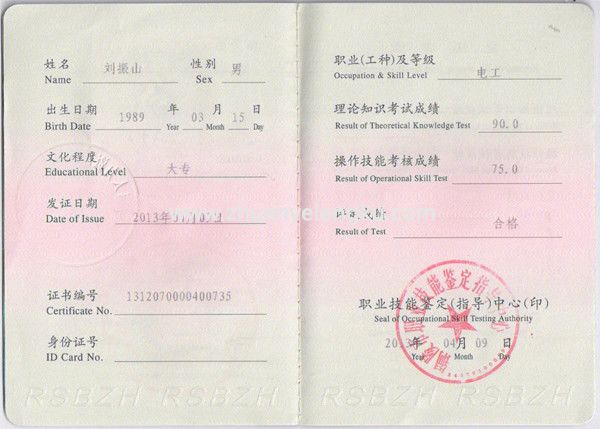 姓名 刘振山 性别 男
Name Sex
出生日期 1989 年 03 月 15 日
Birth Date Year Month Day
文化程度 大专
Educational Level
发证日期 2013年
Date of Issue
证书编号 1312070000400735
Certificate No.
身份证号
ID Card No.
RSBZH RSBZH
职业(工种)及等级 电工
Occupation & Skill Level
理论知识考试成绩 90.0
Result of Theoretical Knowledge Test
操作技能考核成绩 75.0
Result of Operational Skill Test
合格
Result of Test
职业技能鉴定(指导)中心(印)
Seal of Occupational Skill Testing Authority
2013年 04月 09日
Year Month Day
职业技能鉴定指导中心
RSBZH RSBZH